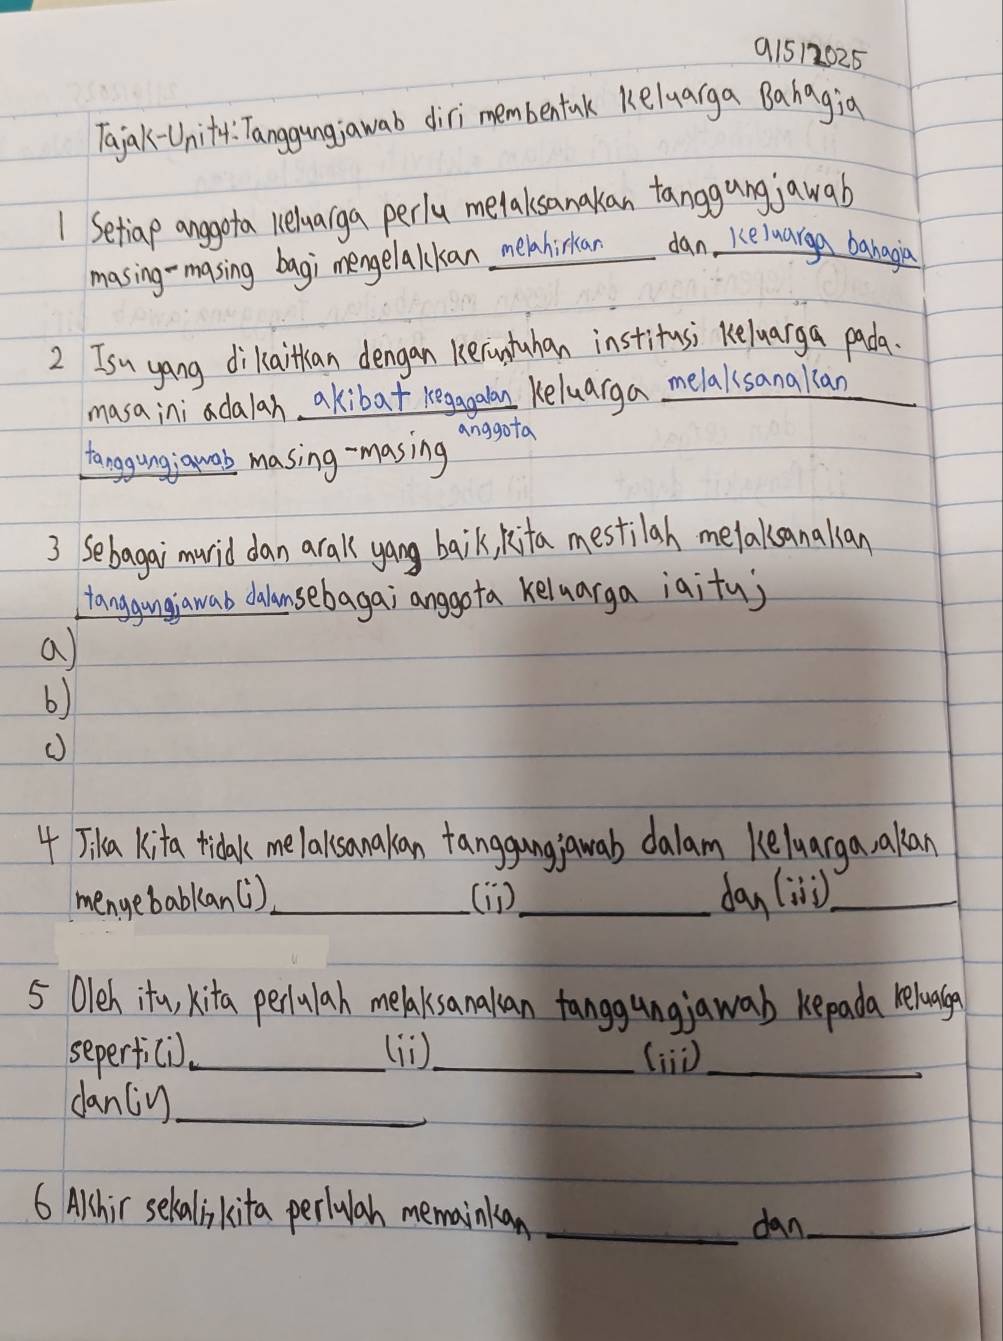 9/5/2025
Tajak-Unit4: Tanggungjawab diri membentuk Keluarga Bahagia
1 Setiap anggota keluarga perlu melaksanakan tanggungjawab
masing-masing bagi mengelakkan melahirkan dan keluarga bahagia
2 Isu yang dikaitkan dengan keruntuhan institusi keluarga pada.
masa ini adalah akibat kegagalan keluarga melaksanakan
anggota
tanggungjawab masing-masing
3 Sebagai murid dan arak yang baik, kita mestilah melaksanakan
tanggungjawab dalam sebagai anggota keluarga iaitu;
a)
b)
c)
4 Jika kita tidak melaksanakan tanggungjawab dalam keluarga, akan
menyebabkan (i) (ii) dan (iii)
5 Oleh itu, kita perlulah melaksanakan tanggungjawab kepada keluarga
seperti (i) (ii) (iii)
dan (iv)
6 Akhir sekali, kita perlulah memainkan dan